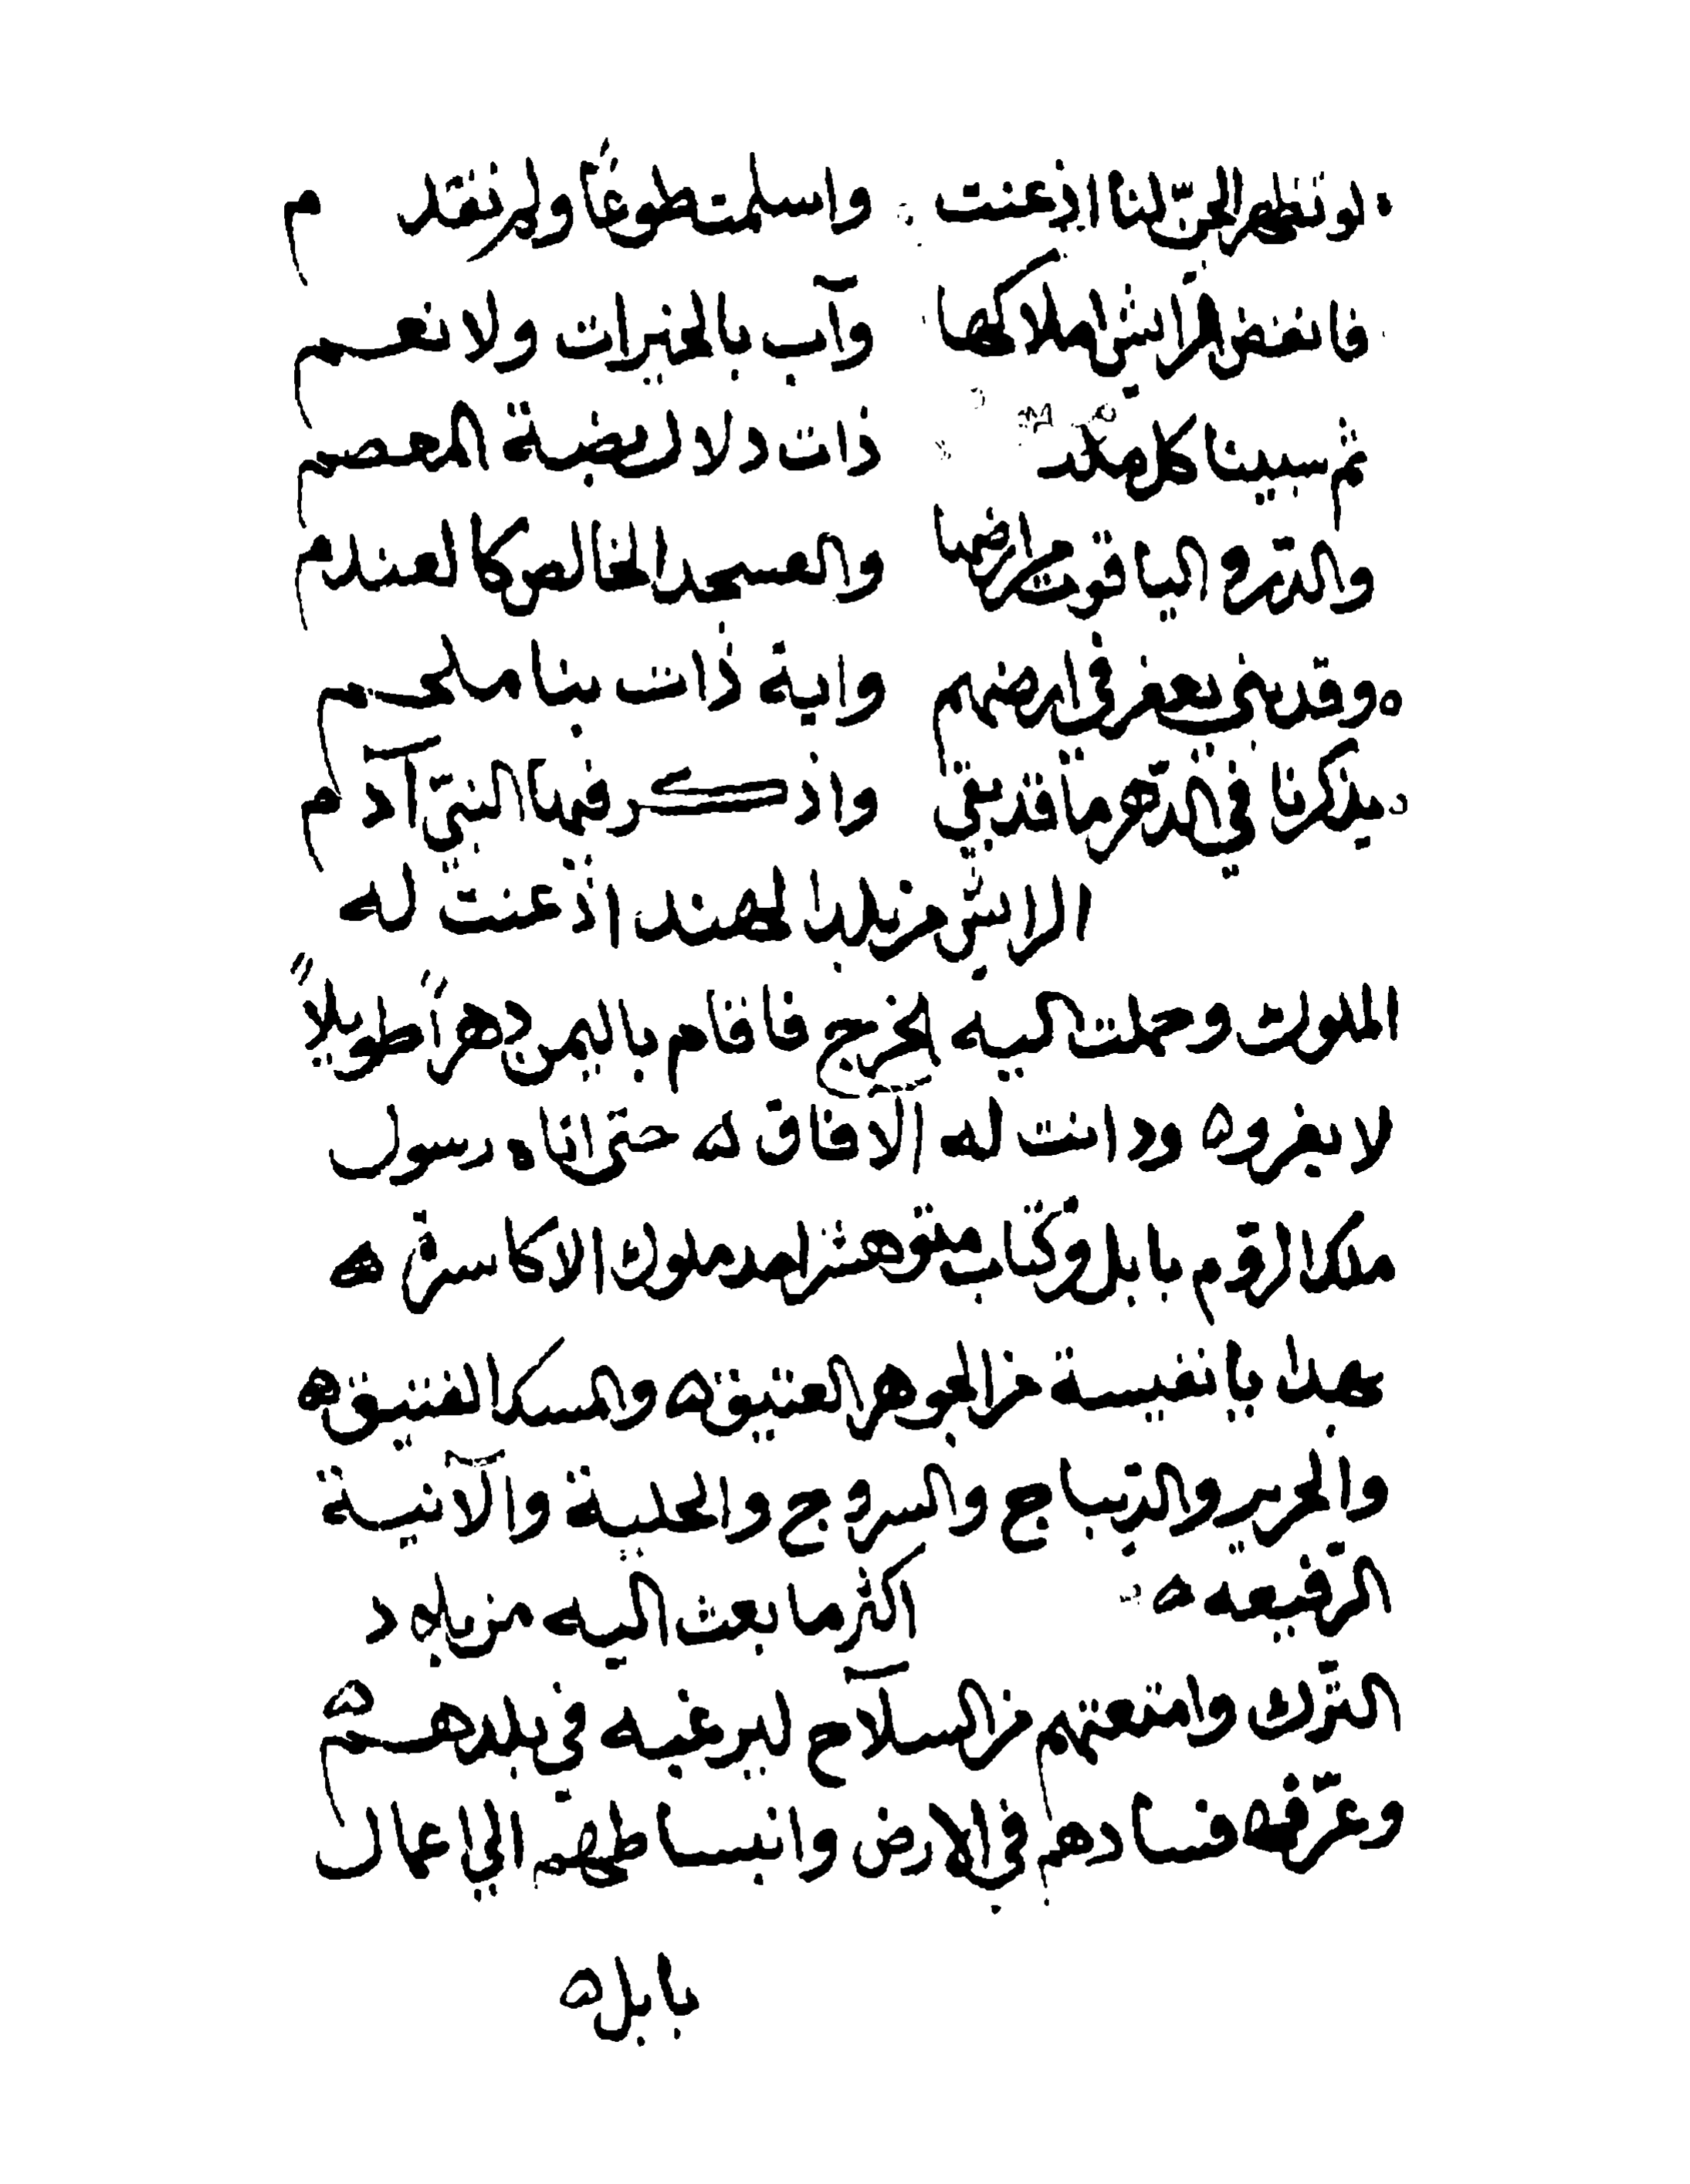 لو تظهر الجنّ لنا اذعنت واسلمت طوعًا ولم نقدم
فانغض الرائش املاكها وآب بالخيرات ولا نعم
ثم سبينا كل ذات دلال بضة المعصم
والدّر واليا قوت من ارضها والعسجد الخالص كالعندم
وقد بنى يعفر في ارضهم واية ذات بنا ملحم
يذكرنا في الدّهر ما قد بقى واذكر فيها النبيّ آدم
الرايش من بلد الهند اذعنت له
الملوك وحملت اليه الخرج فاقام باليمن دهرًا طويلاً
لا يغزوه ودانت له الآفاق ه حتى اتاه رسول
ملك الروم بابل وكتاب منوهشر احد ملوك الاكاسرة ه
بهدايا نفيسة من الجوهر العتيق ه والمسك الفتيق ه
والحرير والدّيباج والسروج والحلية والآنية
الرّفيعه ه اكثر ما بعث اليه من بلاد
الترك وامتعتهم من السلاح ليرغبه في بلدهم ه
وعرّفه فسادهم في الارض وانبساطهم الى اعمال
بابل ه